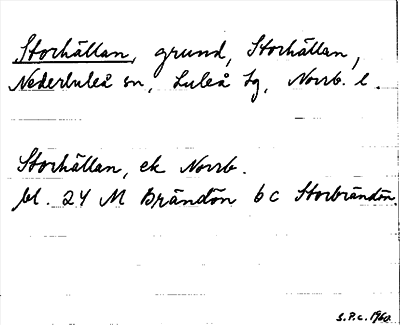 Storhällan, grund, Storhällan,
Nederluleå sn, Luleå tg, Norrb. l.
Storhällan, ek Norrb.
bl. 24 M Brändön 6 c Storbrändön.
S.P.c. 1960